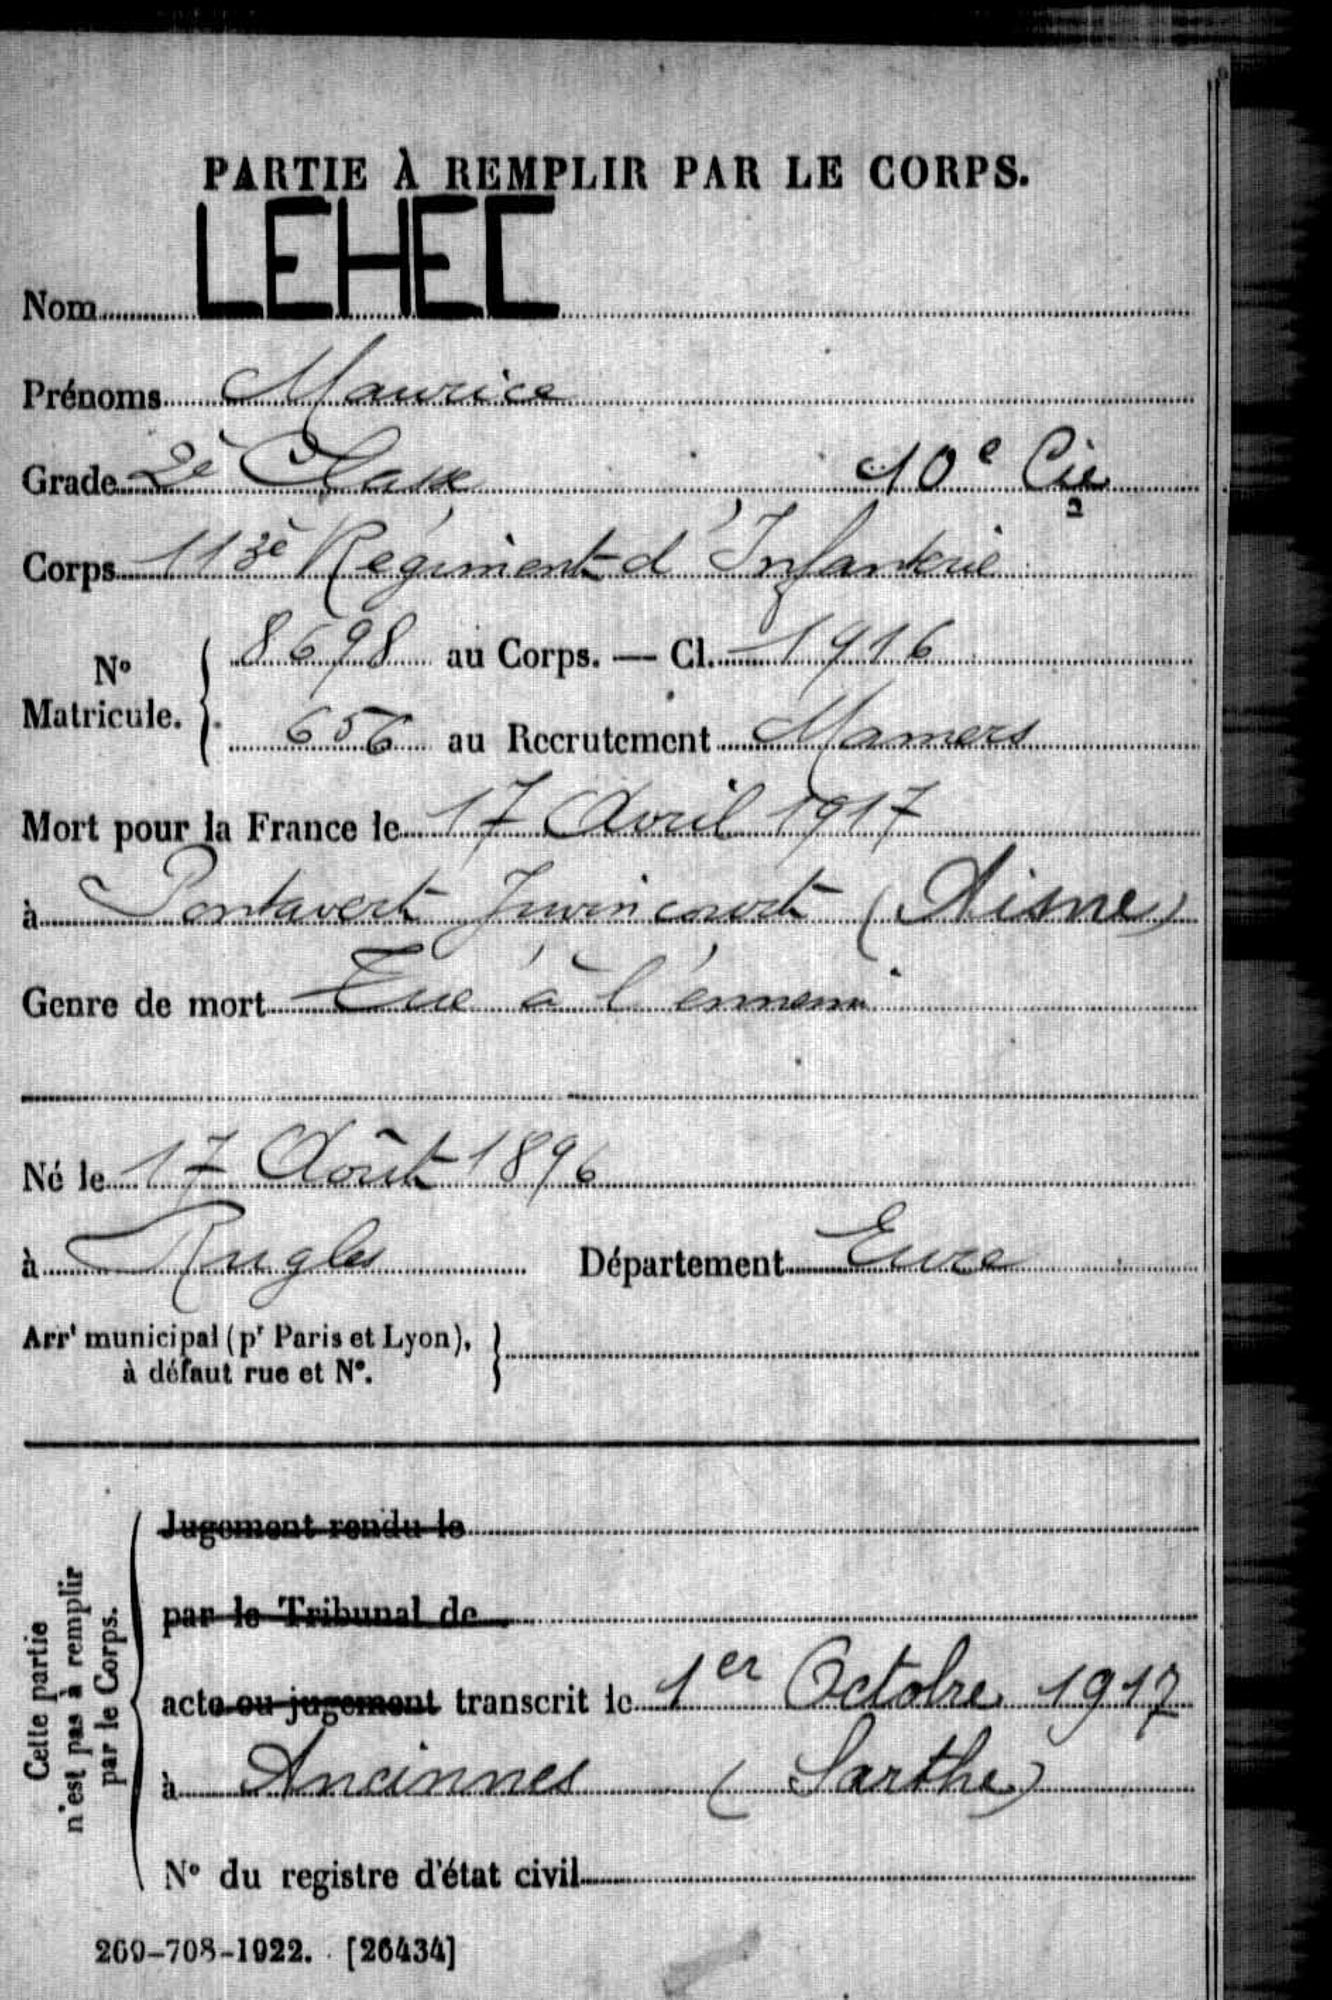 PARTIE À REMPLIR PAR LE CORPS.
Nom LEHEC
Prénoms Maurice
Grade 2è Classe 10e Cie
Corps 113è Régiment d'Infanterie
No Matricule. { 8698 au Corps. — Cl. 1916
656 au Recrutement Mamers
Mort pour la France le 17 Avril 1917
à Pontavert Juvincourt (Aisne)
Genre de mort Tué à l'ennemi
Né le 17 Août 1896
à Rugles Département Eure
Arrt municipal (pr Paris et Lyon),
à défaut rue et No. }
Cette partie
n'est pas à remplir
par le Corps.
Jugement rendu le
par le Tribunal de
acte ou jugement transcrit le 1er Octobre 1917
à Ancinnes (Sarthe)
No du registre d'état civil
269-708-1922. [26434]